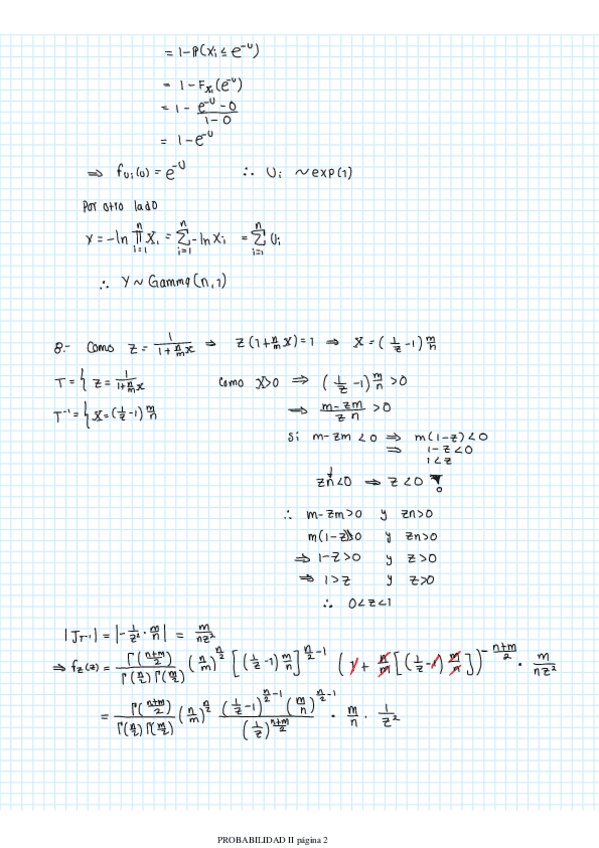 = 1-P(Xi ≤ e^{-U})
= 1-F_{Xi}(e^{-U})
= 1 - \frac{e^{-U}-0}{1-0}
= 1-e^{-U}
⇒ f_{Ui}(U) = e^{-U} ∴ Ui ~exp(1)
Por otro lado
Y = -ln \prod_{i=1}^{n} Xi = \sum_{i=1}^{n} -ln Xi = \sum_{i=1}^{n} Ui
∴ Y ~ Gamma(n,1)
8.- Como Z = \frac{1}{1+\frac{n}{m}X} ⇒ Z(1+\frac{n}{m}X)=1 ⇒ X = (\frac{1}{Z}-1)\frac{m}{n}
T = { Z = \frac{1}{1+\frac{n}{m}X} Como X>0 ⇒ (\frac{1}{Z}-1)\frac{m}{n} >0
T^{-1} = { X = (\frac{1}{Z}-1)\frac{m}{n} ⇒ \frac{m-Zm}{Zn} >0
Si m-Zm <0 ⇒ m(1-Z)<0
⇒ 1-Z<0
1<Z
Zn<0 ⇒ Z<0
∴ m-Zm>0 y Zn>0
m(1-Z)>0 y Zn>0
⇒ 1-Z>0 y Z>0
⇒ 1>Z y Z>0
∴ 0<Z<1
|J_{T^{-1}}| = |-\frac{1}{Z^2}·\frac{m}{n}| = \frac{m}{nZ^2}
⇒ f_Z(Z) = \frac{Γ(\frac{n+m}{2})}{Γ(\frac{n}{2})Γ(\frac{m}{2})} (\frac{n}{m})^{\frac{n}{2}} [(\frac{1}{Z}-1)\frac{m}{n}]^{\frac{n}{2}-1} (1+\frac{n}{m}[(\frac{1}{Z}-1)\frac{m}{n}])^{-\frac{n+m}{2}} · \frac{m}{nZ^2}
= \frac{Γ(\frac{n+m}{2})}{Γ(\frac{n}{2})Γ(\frac{m}{2})} (\frac{n}{m})^{\frac{n}{2}} \frac{(\frac{1}{Z}-1)^{\frac{n}{2}-1} (\frac{m}{n})^{\frac{n}{2}-1}}{(\frac{1}{Z})^{\frac{n+m}{2}}} · \frac{m}{n} · \frac{1}{Z^2}
PROBABILIDAD II página 2